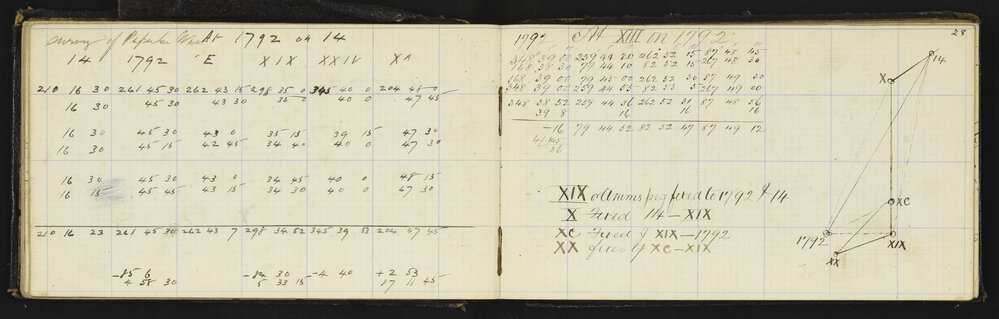 survey of 1792 on 14
14 1792 E XIX XXIV XA
210 16 30 261 45 30 262 43 15 298 35 0 345 40 0 204
16 30 45 30 43 30 35 0 40 0 47 45
16 30 45 30 43 0 35 15 39 15 47 30
16 30 45 15 42 45 34 40 40 0 47 30
16 30 45 30 43 0 34 45 40 0 48 15
16 15 45 45 43 15 34 30 40 0 47 30
210 16 23 261 45 30 262 43 7 298 34 52 345 39 53 204 47 45
-85 6 -84 30 -4 40 +2 53
4 58 30 5 33 15 17 11 45
28
1792 At XIII on 1792
348 39 00 259 44 20 262 52 15 87 48 45
168 38 30 79 44 10 82 52 15 267 48 30
168 39 00 79 45 00 262 52 30 87 49 30
348 39 00 259 44 55 82 53 267 49 00
348 38 52 259 44 36 262 52 31 87 48 56
39 8 16 16 16
-16 79 44 52 82 52 47 87 49 12
XIX or Arams peg fixed to 1792 & 14
X Fixed 14 - XIX
XC Fixed by XIX - 1792
XX fixed by XC - XIX
14
X
XC
1792
XIX
XX